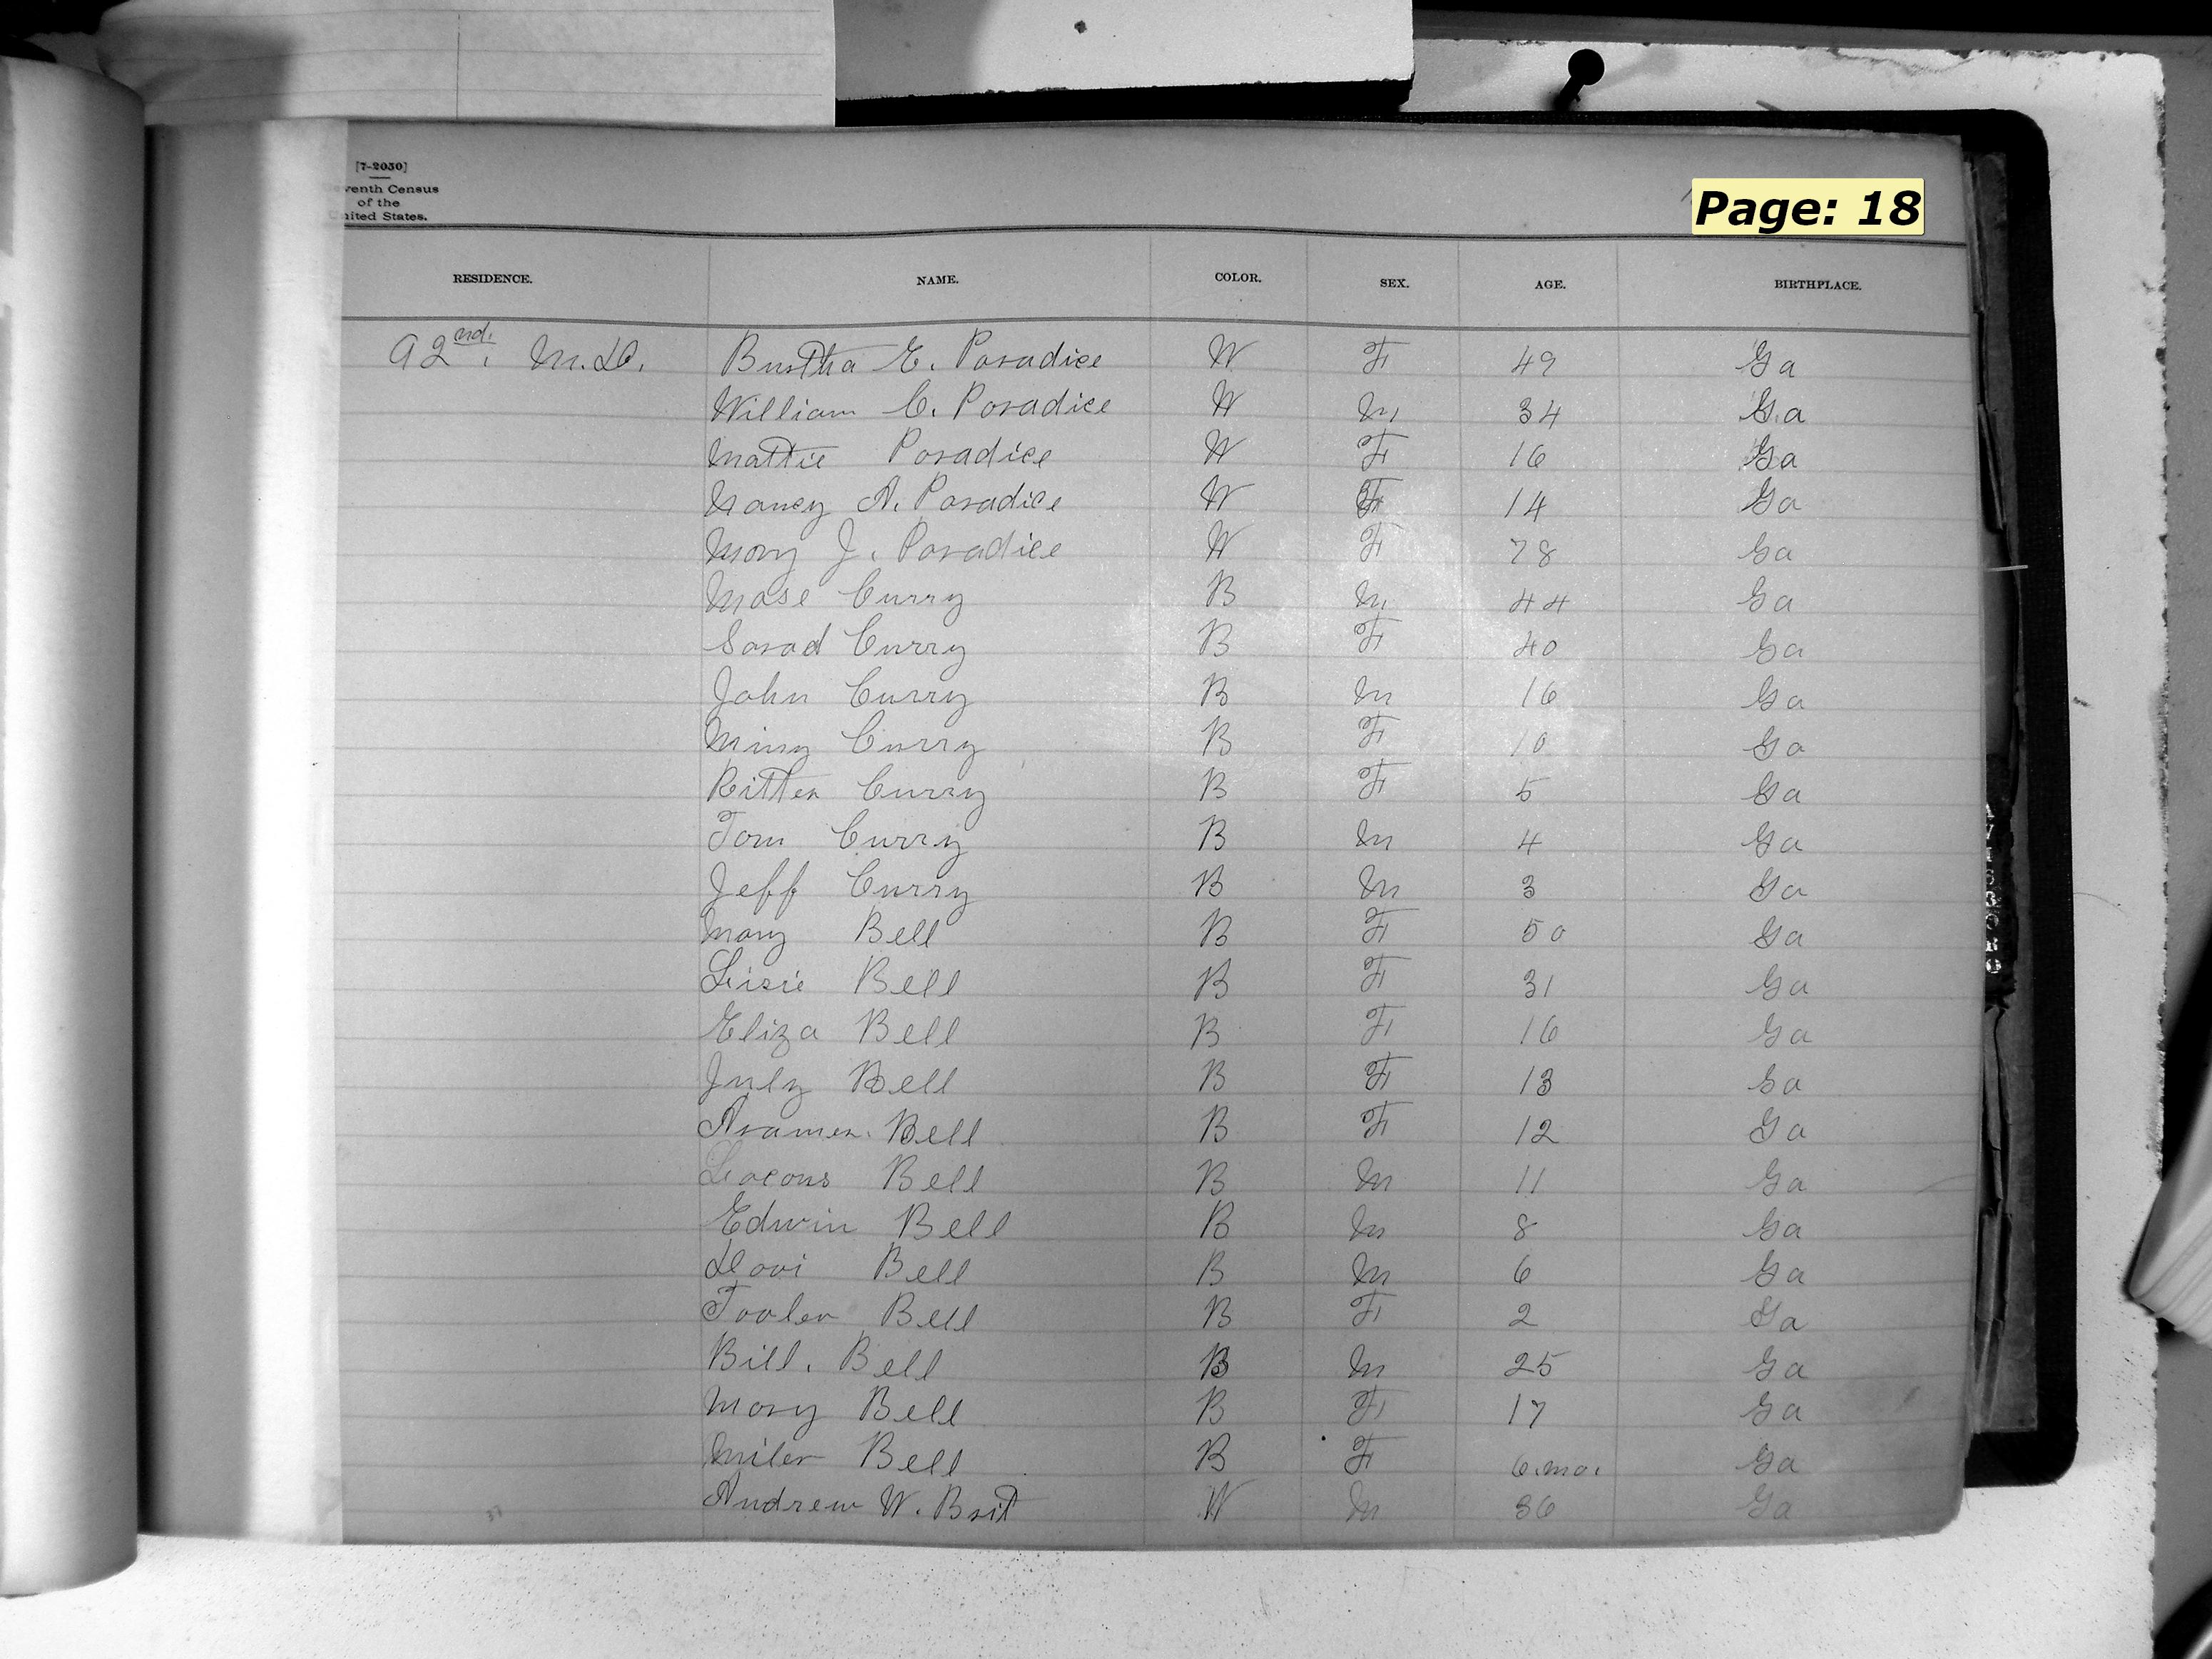 [7-2030]
venth Census
of the
United States.
Page: 18
RESIDENCE. NAME. COLOR. SEX. AGE. BIRTHPLACE.
92nd. M.D. E. Paradice W F 49 Ga
William C. Paradice W M 34 Ga
Mattie Paradice W F 16 Ga
Nancy A. Paradice W F 14 Ga
Mary J. Paradice W F 78 Ga
Mase Curry B M 44 Ga
Sarad Curry B F 40 Ga
John Curry B M 16 Ga
Miny Curry B F 10 Ga
Ritter Curry B F 5 Ga
Tom Curry B M 4 Ga
Jeff Curry B M 3 Ga
Mary Bell B F 50 Ga
Lizie Bell B F 31 Ga
Eliza Bell B F 16 Ga
July Bell B F 13 Ga
Bell B F 12 Ga
Bell B M 11 Ga
Edwin Bell B M 8 Ga
Davi Bell B M 6 Ga
Bell B F 2 Ga
Bill. Bell B M 25 Ga
Mary Bell B F 17 Ga
Miler Bell B F 6.mo. Ga
Andrew W. Brit W M 36 Ga